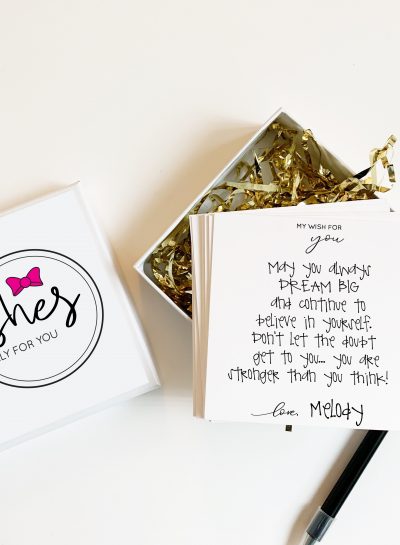 MY WISH FOR
you
May you always
DREAM BIG
and continue to
believe in yourself.
Don't let the doubt
get to you... you are
stronger than you think!
love, Melody
FOR YOU